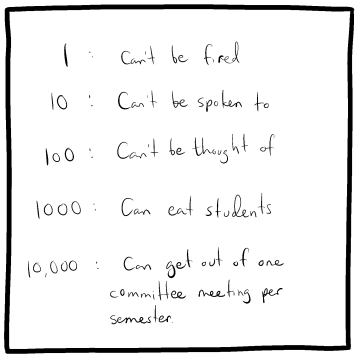 1 : Can't be fired
10 : Can't be spoken to
100 : Can't be thought of
1000 : Can eat students
10,000 : Can get out of one
committee meeting per
semester.